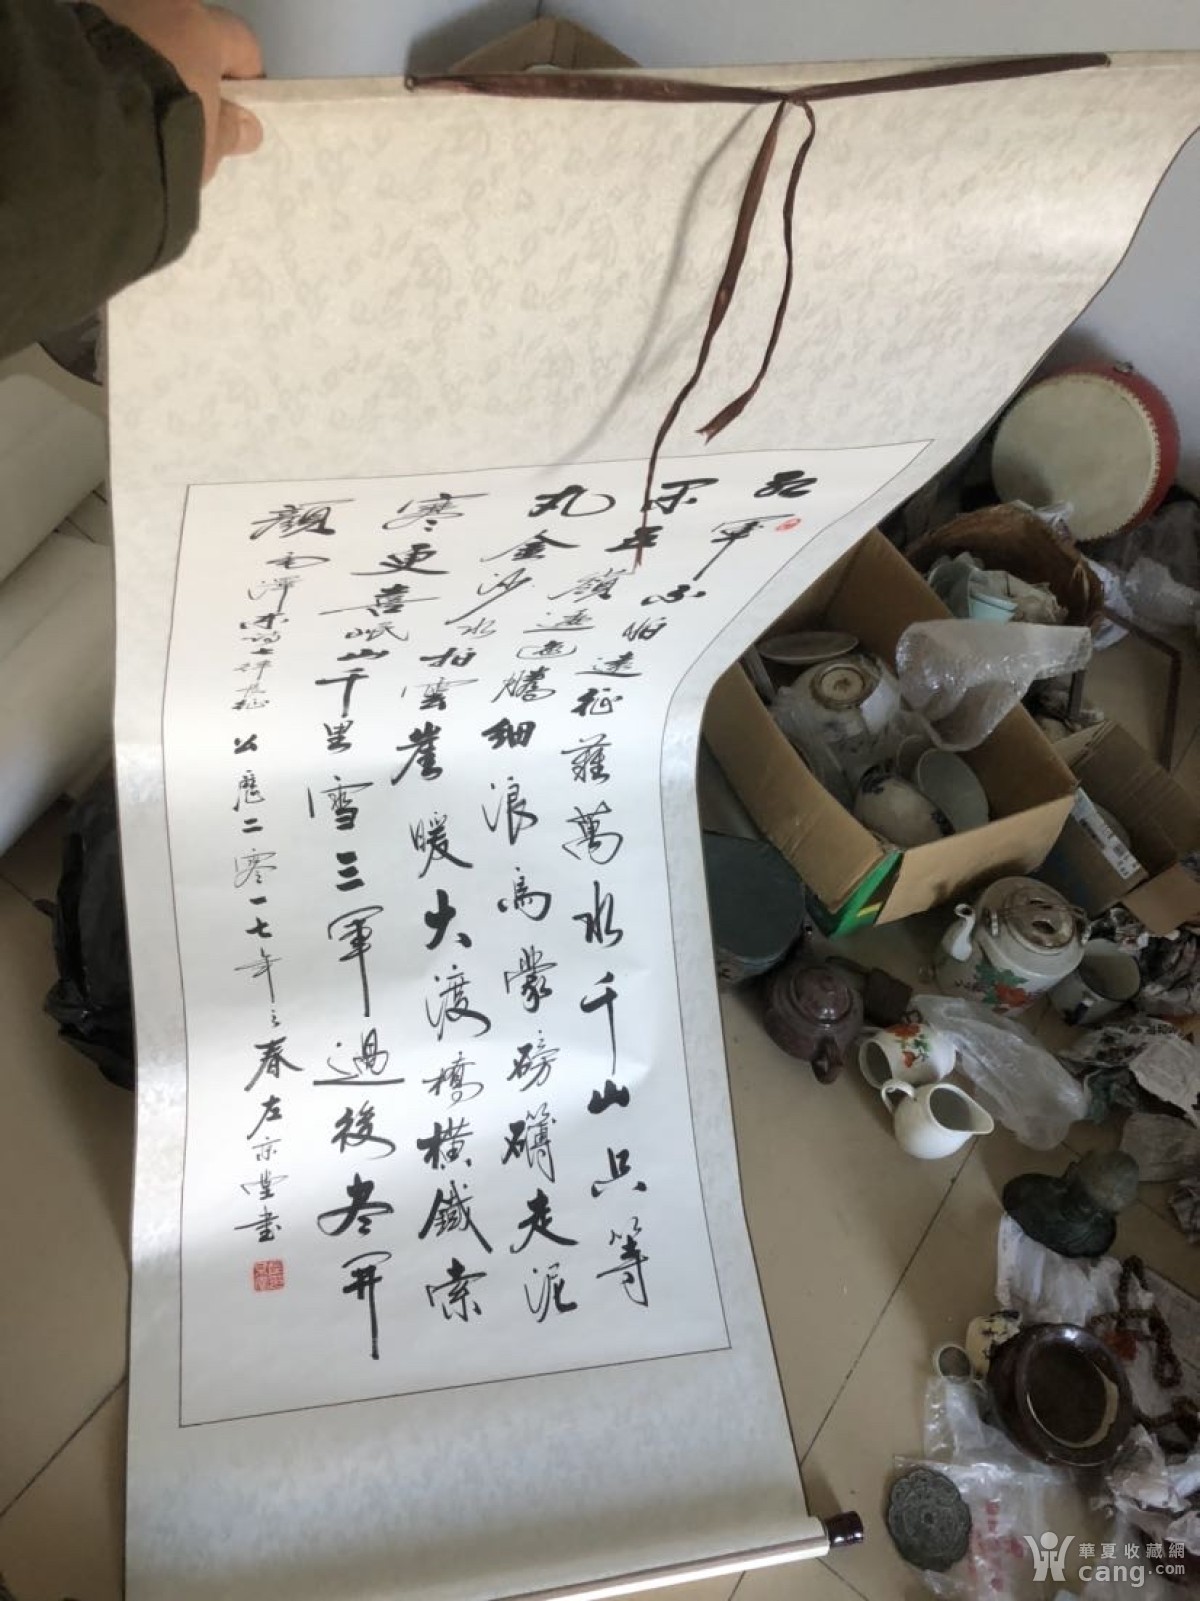 紅軍不怕遠征難萬水千山只等
閑五嶺逶迤騰細浪烏蒙磅礴走泥
丸金沙水拍雲崖暖大渡橋橫鐵索
寒更喜岷山千里雪三軍過後尽開
顏 毛澤东詩七律長征 公歷二零一七年之春左京堂書
華夏收藏網
cang.com